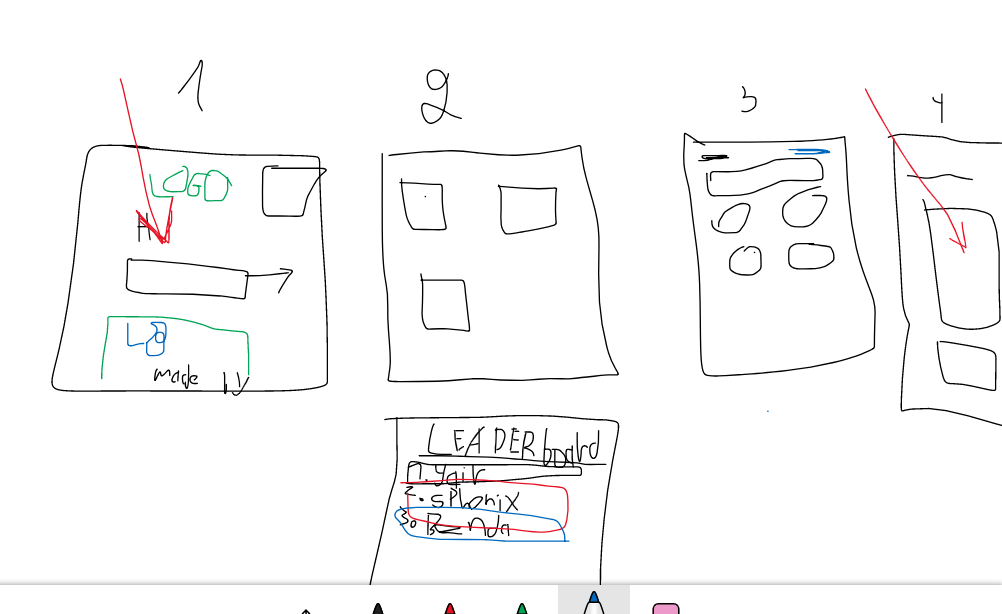 1
2
3
4
LOGO
made by
LEADERboard
1. Yair
2. sPhonix